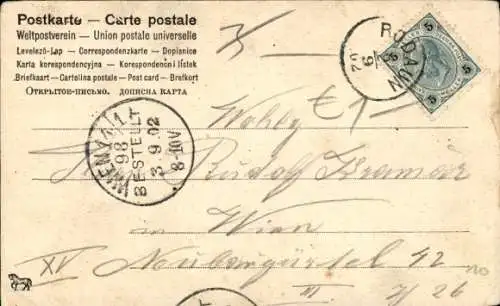 Postkarte — Carte postale
Weltpostverein — Union postale universelle
Levelező-Lap — Correspondenzkarte — Dopisnice
Karta korespondencyjna — Korespondenci lístek
Briefkaart — Cartolina postale — Post card — Brefkort
Открытое-письмо. ДОПИСНА КАРТА
RODAUN
5 5
5 5
WIEN 1/1
98
BESTELLT
3.9.02
8-10V
Wohlg
Rudolf Kramar
in Wien
XV Neubaugürtel 42
III 7/26